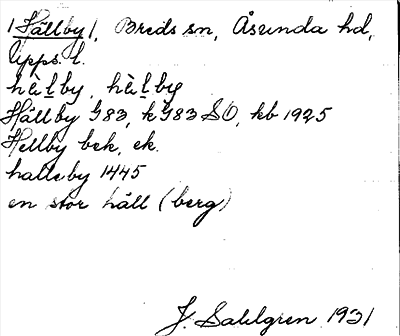 /Hällby/, Breds sn, Åsunda hd,
Upps. l.
hὲḷby, hὲḷby
Hällby G83, kG83 SO, kb 1925
Hellby bek, ek.
halleby 1445
en stor häll (berg)
J. Sahlgren 1931